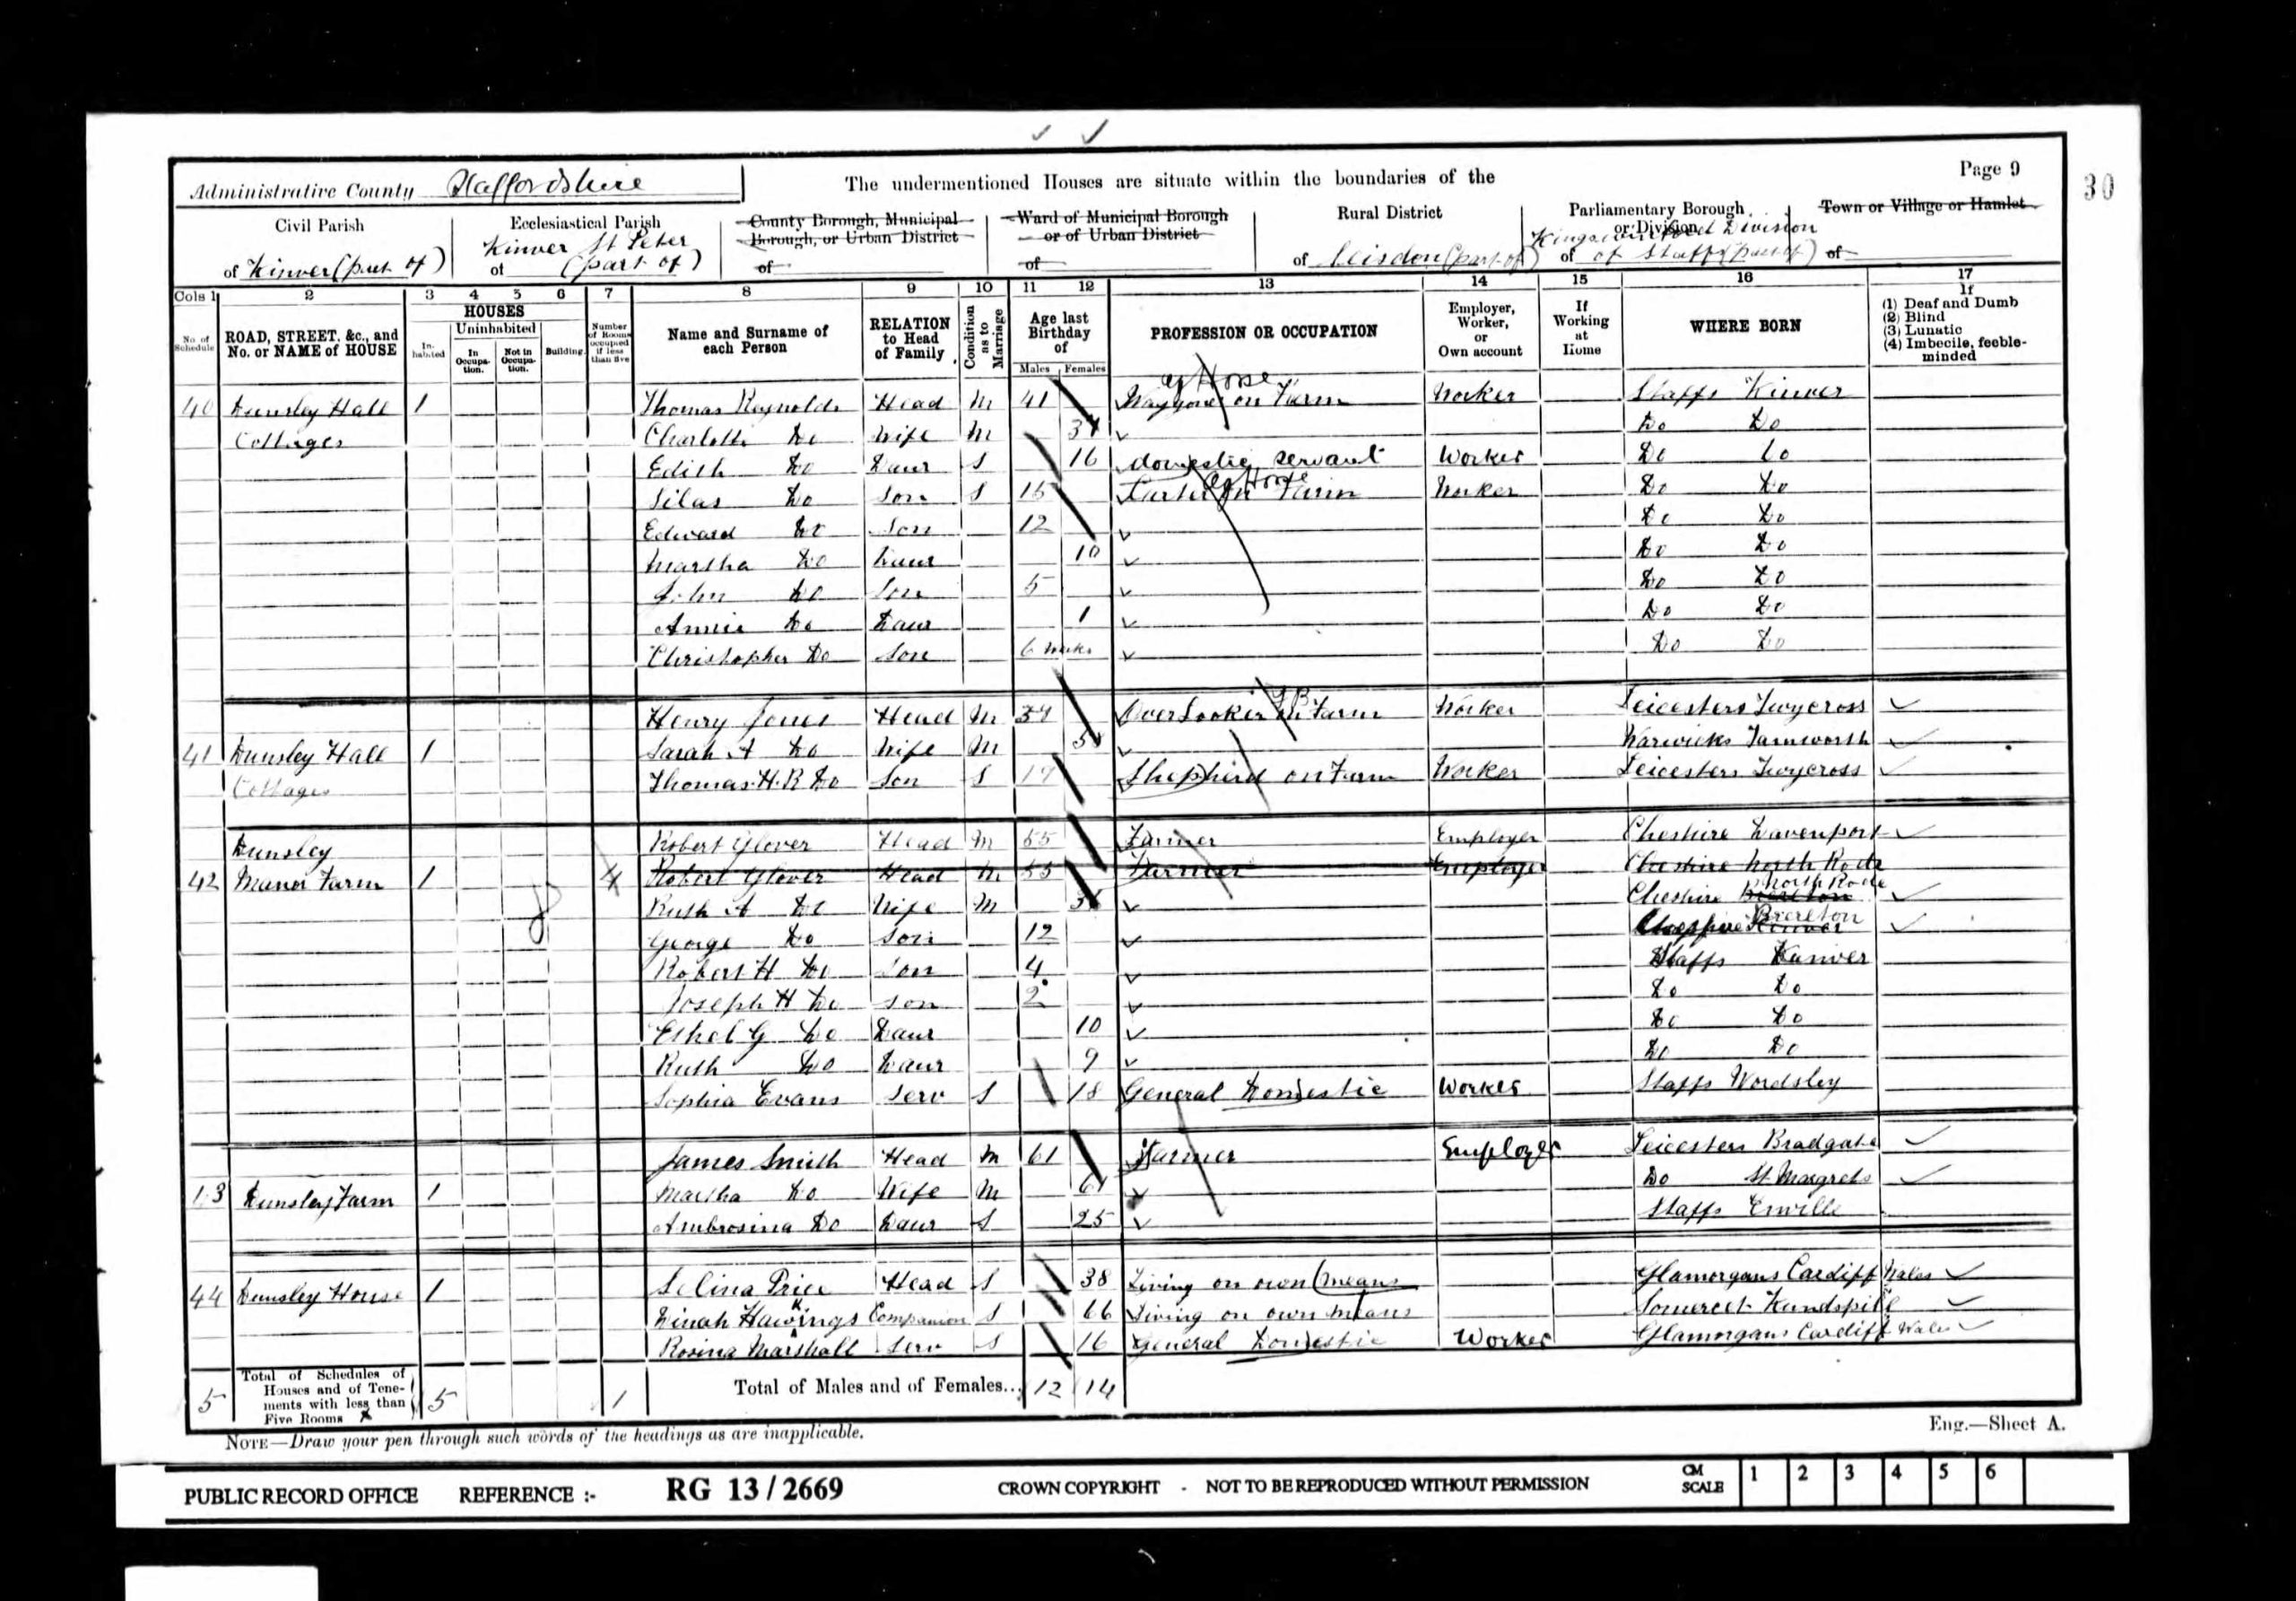 Page 9
30
Administrative County Staffordshire
The undermentioned Houses are situate within the boundaries of the
Civil Parish
of Kinver (part of)
Ecclesiastical Parish
of Kinver St Peter (part of)
County Borough, Municipal Borough, or Urban District
of
Ward of Municipal Borough or of Urban District
of
Rural District
of Seisdon (part of)
Parliamentary Borough or Division
of Kingswinford Division of Staffs (part of)
Town or Village or Hamlet
of
Cols 1 2 3 4 5 6 7 8 9 10 11 12 13 14 15 16 17
No. of Schedule
ROAD, STREET, &c., and No. or NAME of HOUSE
HOUSES
Inhabited
Uninhabited
In Occupation.
Not in Occupation.
Building.
Number of Rooms occupied if less than five
Name and Surname of each Person
RELATION to Head of Family
Condition as to Marriage
Age last Birthday of
Males Females
PROFESSION OR OCCUPATION
Employer, Worker, or Own account
If Working at Home
WHERE BORN
If
(1) Deaf and Dumb
(2) Blind
(3) Lunatic
(4) Imbecile, feeble-minded
40 Dunsley Hall 1 Thomas Reynolds Head M 41 Waggoner on Farm Worker Staffs Kinver
Cottages Charlotte Do Wife M Do Do
Edith Do Daur S 16 domestic servant Worker Do Do
Silas Do Son S 15 Carter on Farm Worker Do Do
Edward Do Son 12 Do Do
Martha Do Daur 10 Do Do
John Do Son 5 Do Do
Annie Do Daur 1 Do Do
Christopher Do Son 6 weeks Do Do
Henry Jones Head M Overlooker on Farm Worker Leicesters Twycross
41 Dunsley Hall 1 Sarah A Do Wife M Warwicks Tamworth
Cottages Thomas H. R Do Son S Shepherd on Farm Worker Leicesters Twycross
Dunsley Robert Glover Head M 55 Farmer Employer Cheshire Davenport
42 Manor Farm 1 4 Robert Glover Head M 55 Farmer Employer Cheshire North Rode
Ruth A Do Wife M Cheshire Brereton North Rode
George Do Son 12 Cheshire Kinver Brereton
Robert H Do Son 4 Staffs Kinver
Joseph H Do Son 2 Do Do
Ethel G Do Daur 10 Do Do
Ruth Do Daur 9 Do Do
Sophia Evans Serv S 18 General Domestic Worker Staffs Wordsley
James Smith Head M 61 Farmer Employer Leicesters Bradgate
43 Dunsley Farm 1 Martha Do Wife M 61 Do St Margrets
Ambrosina Do Daur S 25 Staffs Enville
44 Dunsley House 1 Selina Price Head S 38 Living on own means Glamorgans Cardiff Wales
Dinah Hawkings Companion S 66 Living on own means Somerset
Rosina Marshall Serv S 16 General Domestic Worker Glamorgans Cardiff Wales
5 Total of Schedules of Houses and of Tenements with less than Five Rooms 5 1 Total of Males and of Females... 12 14
NOTE—Draw your pen through such words of the headings as are inapplicable.
Eng.—Sheet A.
PUBLIC RECORD OFFICE REFERENCE :- RG 13 / 2669 CROWN COPYRIGHT - NOT TO BE REPRODUCED WITHOUT PERMISSION CM SCALE 1 2 3 4 5 6